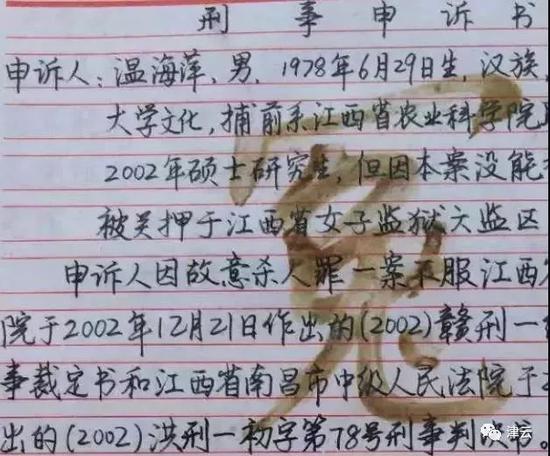 刑事申诉书
申诉人：温海萍，男，1978年6月29日生，汉族，
大学文化，捕前系江西省农业科学院
2002年硕士研究生，但因本案没能
被关押于江西省女子监狱六监区
申诉人因故意杀人罪一案不服江西
院于2002年12月21日作出的(2002)赣刑一
事裁定书和江西省南昌市中级人民法院于2
出的(2002)洪刑一初字第78号刑事判决书。
冤
津云